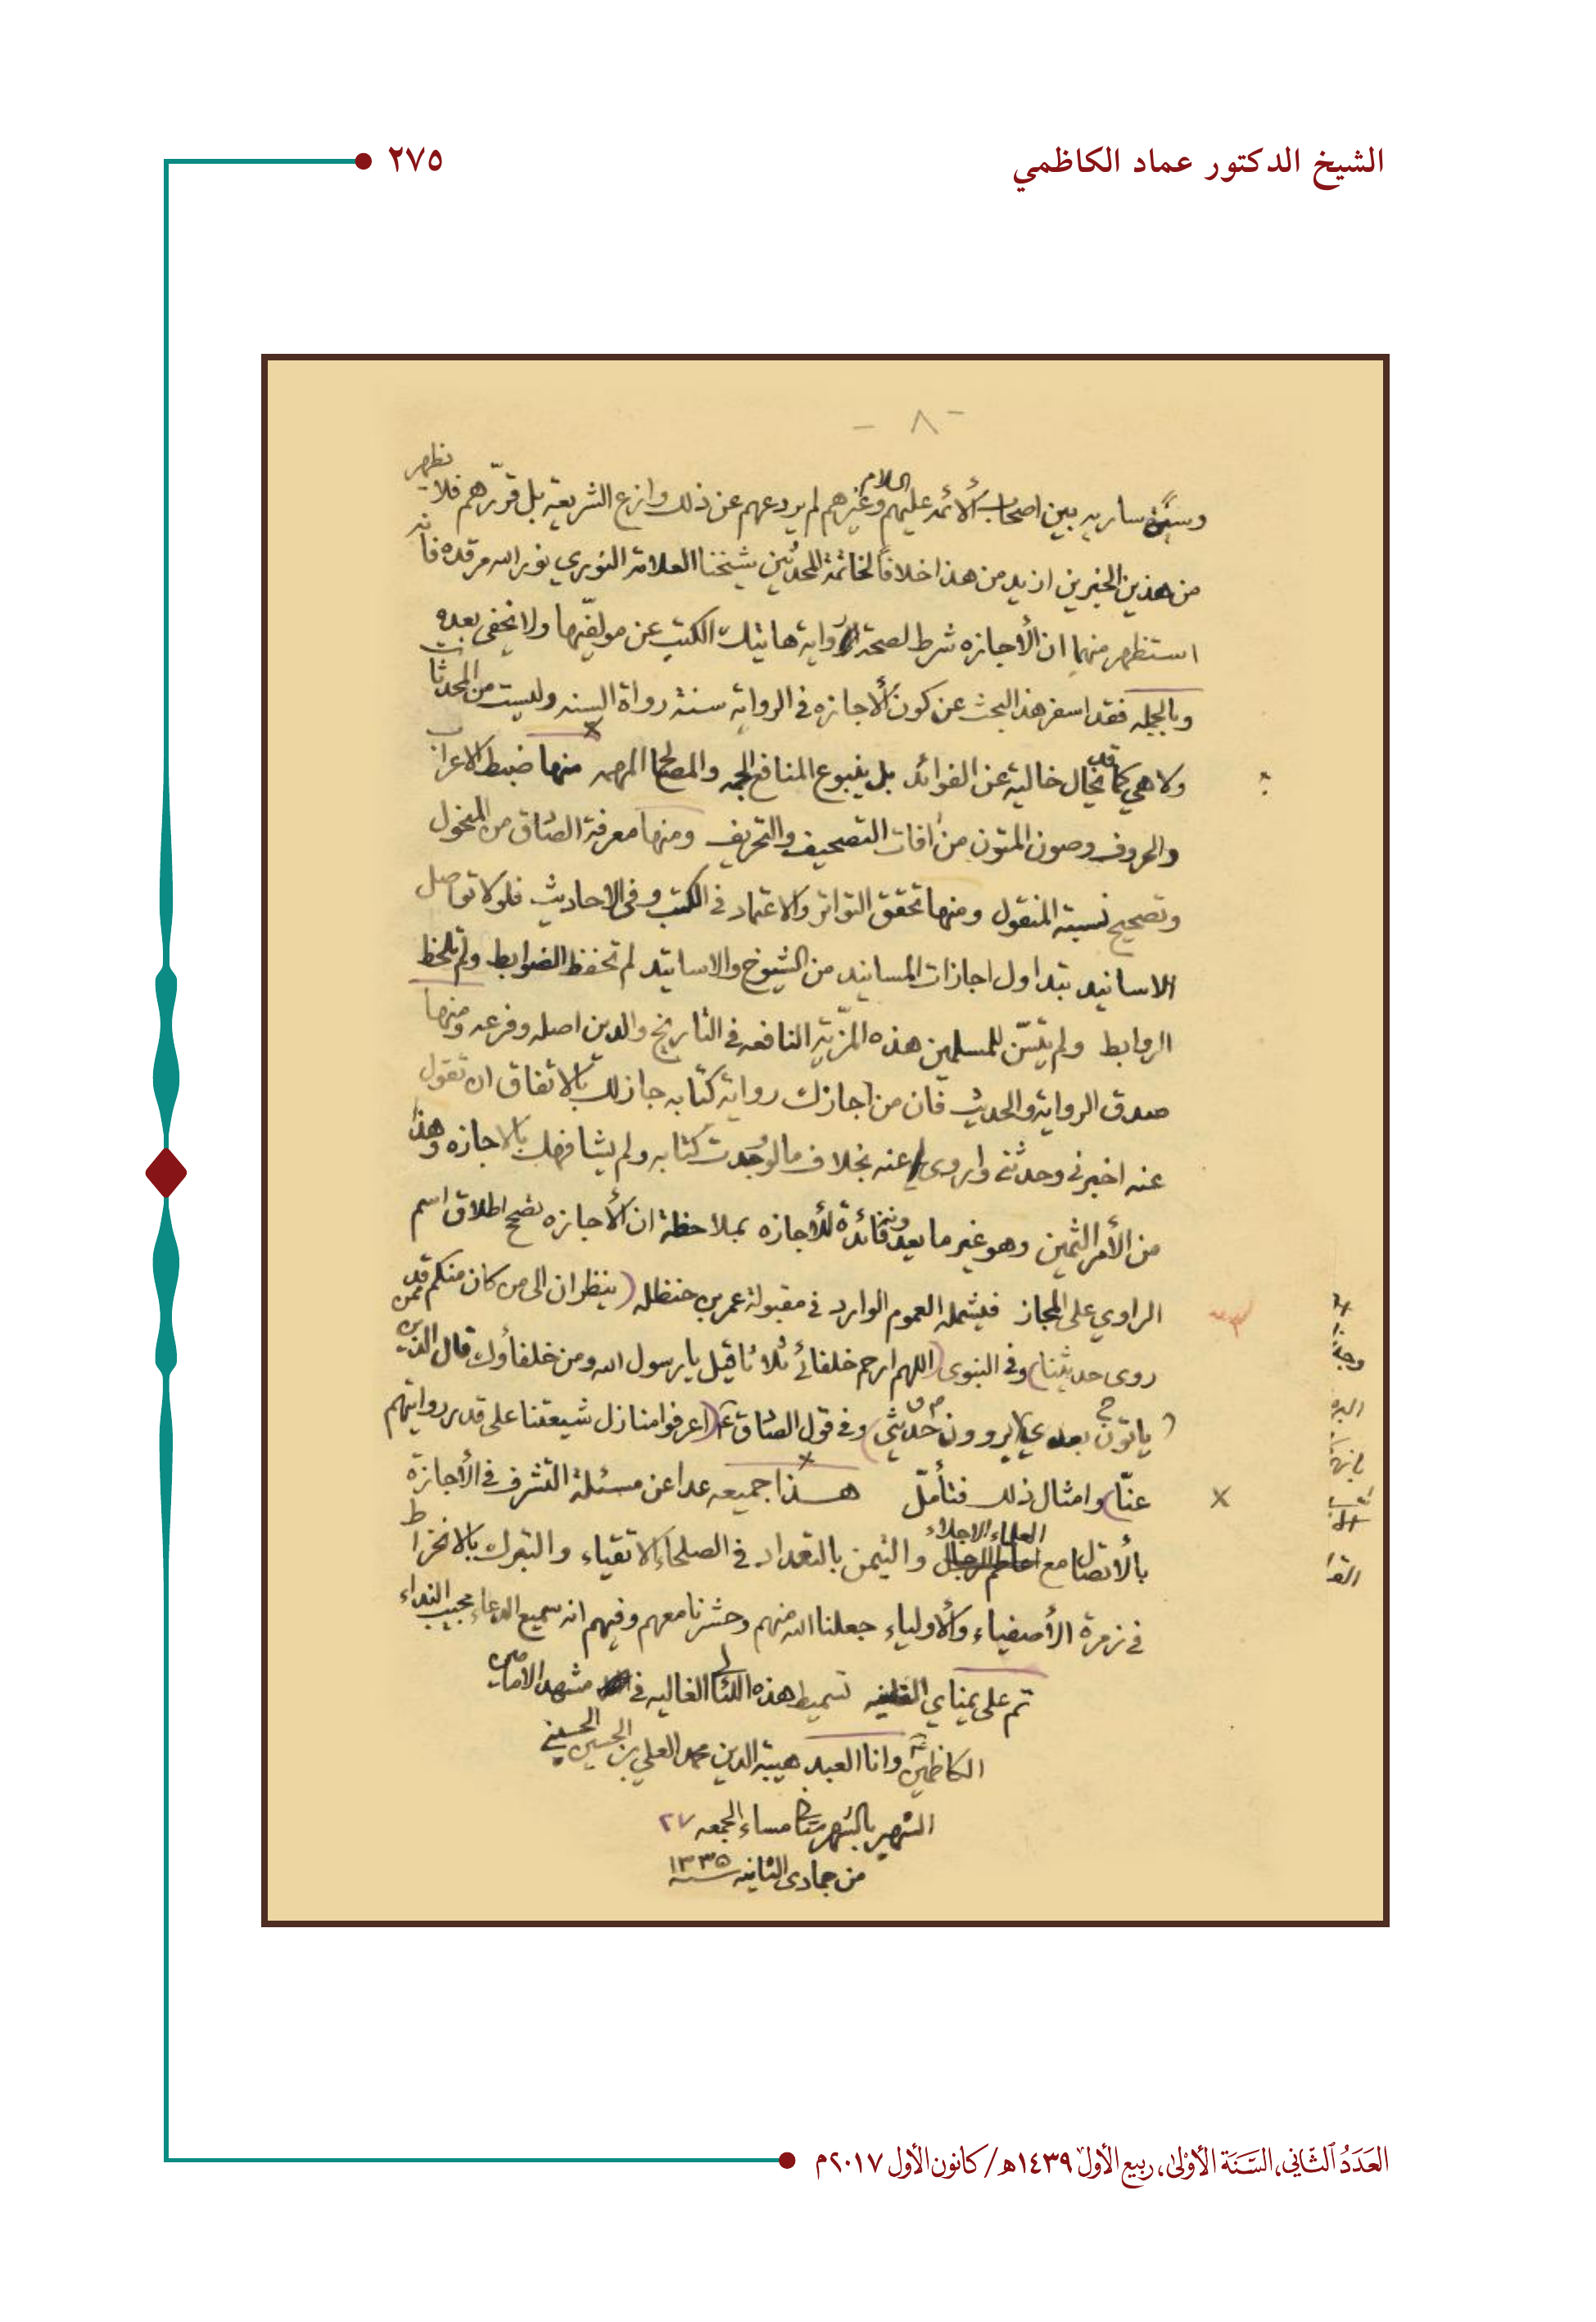 الشيخ الدكتور عماد الكاظمي
٢٧٥
- ٨ -
وسنّة ساريه بين اصحاب الأئمه عليهم السلام وغيرهم لم يردعهم عن ذلك وازع الشريعة بل قرّرهم فلا يظهر
من هذين الخبرين ازيد من هذا خلافاً لخاتمة المحدثين شيخنا العلامة النوري نور الله مرقده فانه
استظهر منهما ان الأجازه شرط لصحة الرواية هاتيك الكتب عن مولفيها ولا يخفى بعده
وبالجمله فقد اسفر هذ البحث عن كون الأجازه في الرواية سنة رواة السنه وليست من المحدثات
ولا هي كما قد يخال خالية عن الفوائد بل ينبوع المنافع الجمه والمصالح المهمه منها ضبط الاعراب
والحروف وصون المتون من افات التصحيف والتحريف ومنها معرفة الصادق من المنحول
وتصحيح نسبته المنقول ومنها تحقق التواتر والاعتماد في الكتب وفي الاحاديث فلولا تواصل
الاسانيد بتداول اجازات المسانيد من الشيوخ والاساتيد لم تحفظ الضوابط ولم تلحظ
الروابط ولم يتسنّ للمسلمين هذه المزّية النافعه في التاريخ والدين اصله وفرعه ومنها
صدق الرواية والحديث فان من اجازك رواية كتابه جاز لك بالاتفاق ان تقول
عنه اخبرني وحدثني واروي عنه بخلاف ما لو وجدت كتابه ولم يشافهك بالاجازه وهذا
من الأمر الثمين وهو غير ما يعدونه فائدة للأجازه بملاحظة ان الأجازه تصحح اطلاق اسم
الراوي على المجاز فيشمله العموم الوارد في مقبولة عمر بن حنظله (ينظران الى من كان منكم قد ممن
روى حديثنا) وفي النبوي (اللهم ارحم خلفائي ثلاثا قيل يا رسول الله ومن خلفاؤك قال الذين
ياتون بعدي يروون حديثي) وفي قول الصادق (اعرفوا منازل شيعتنا على قدر روايتهم
عنّا) وامثال ذلك فتأملّ هذا جميعه عدا عن مسئلة التشرف في الأجازة
بالأتصال مع العلماء الاجلاء والتيمن بالتعداد في الصلحاء الاتقياء والتبرك بالانخراط
في زمرة الأصفياء والأولياء جعلنا الله منهم وحشرنا معهم وفيهم انه سميع الدعاء مجيب النداء
تم على يمناي تسميط هذه اللئالي الغاليه في مشهد الامامين
الكاظمين وانا العبد هبة الدين محمد العلي بن الحسين الحسيني
الشهير بالشهرستاني مساء الجمعه ٢٧
من جمادى الثانيه سنة ١٣٣٥
العَدَدُ الثّاني، السَّنَة الأوْلىٰ، ربيع الأول ١٤٣٩هـ/كانون الأول ٢٠١٧م